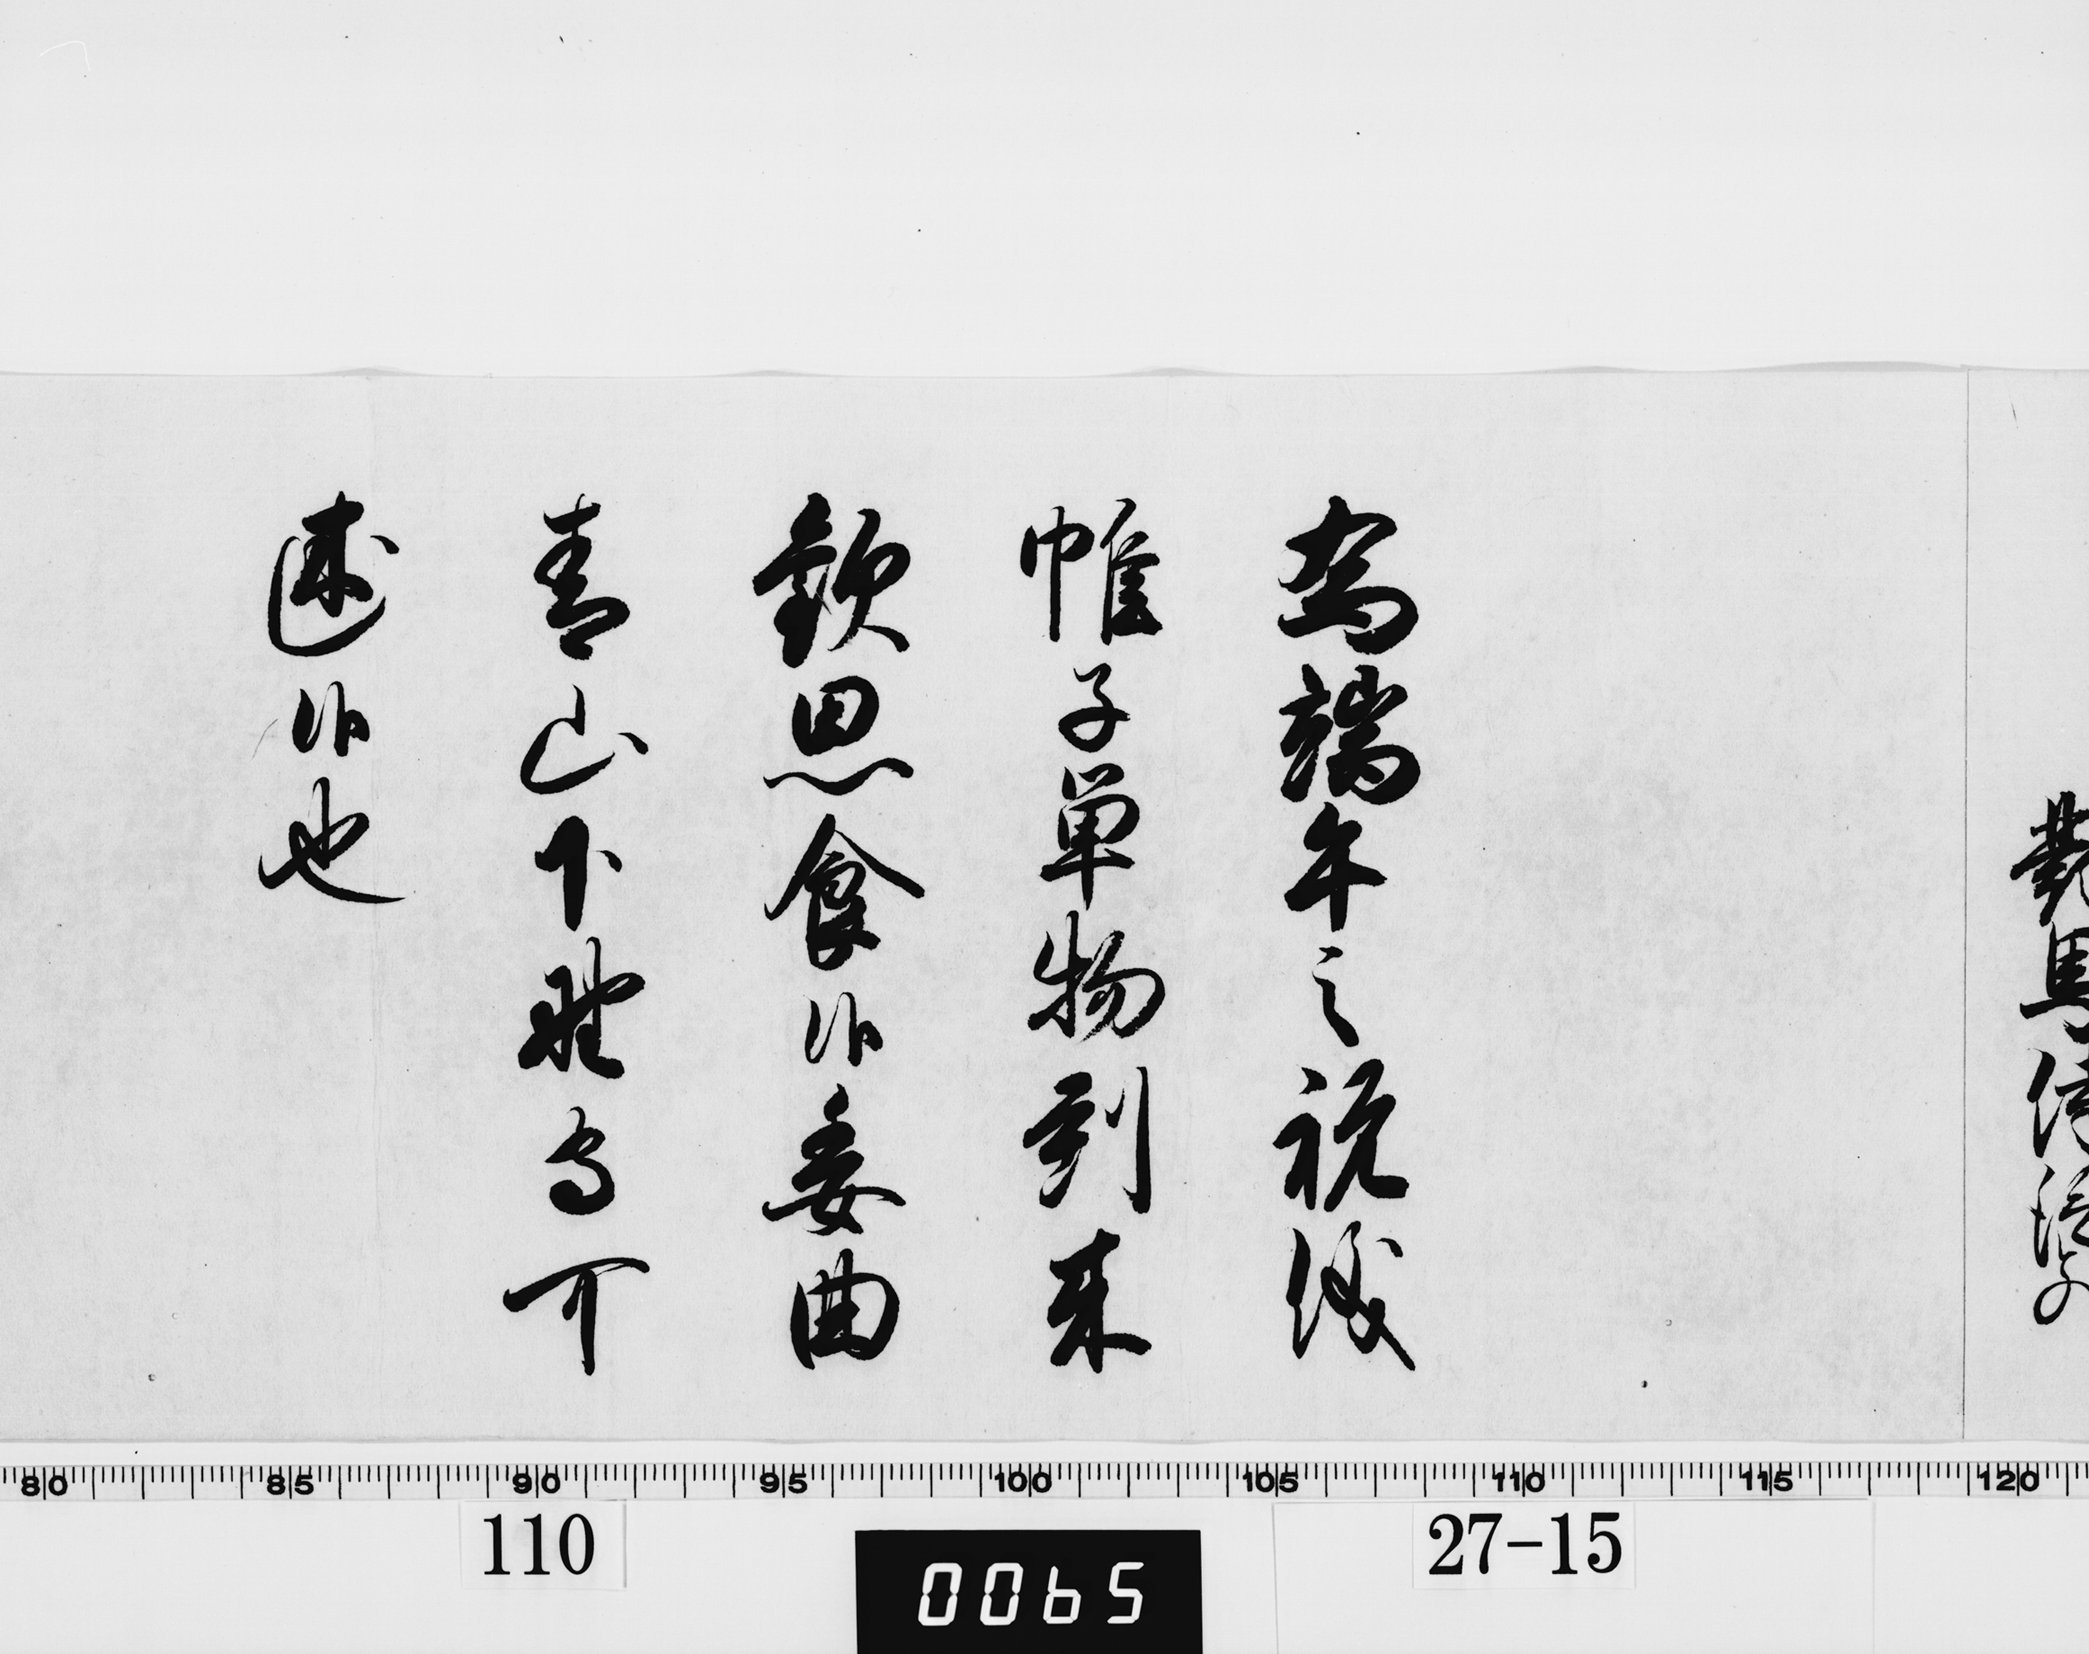 對馬侍従とのへ
為端午之祝儀
帷子単物到来
歓思食候委曲
青山下野守可
述候也
80 85 90 95 100 105 110 115 120
110
27-15
0065